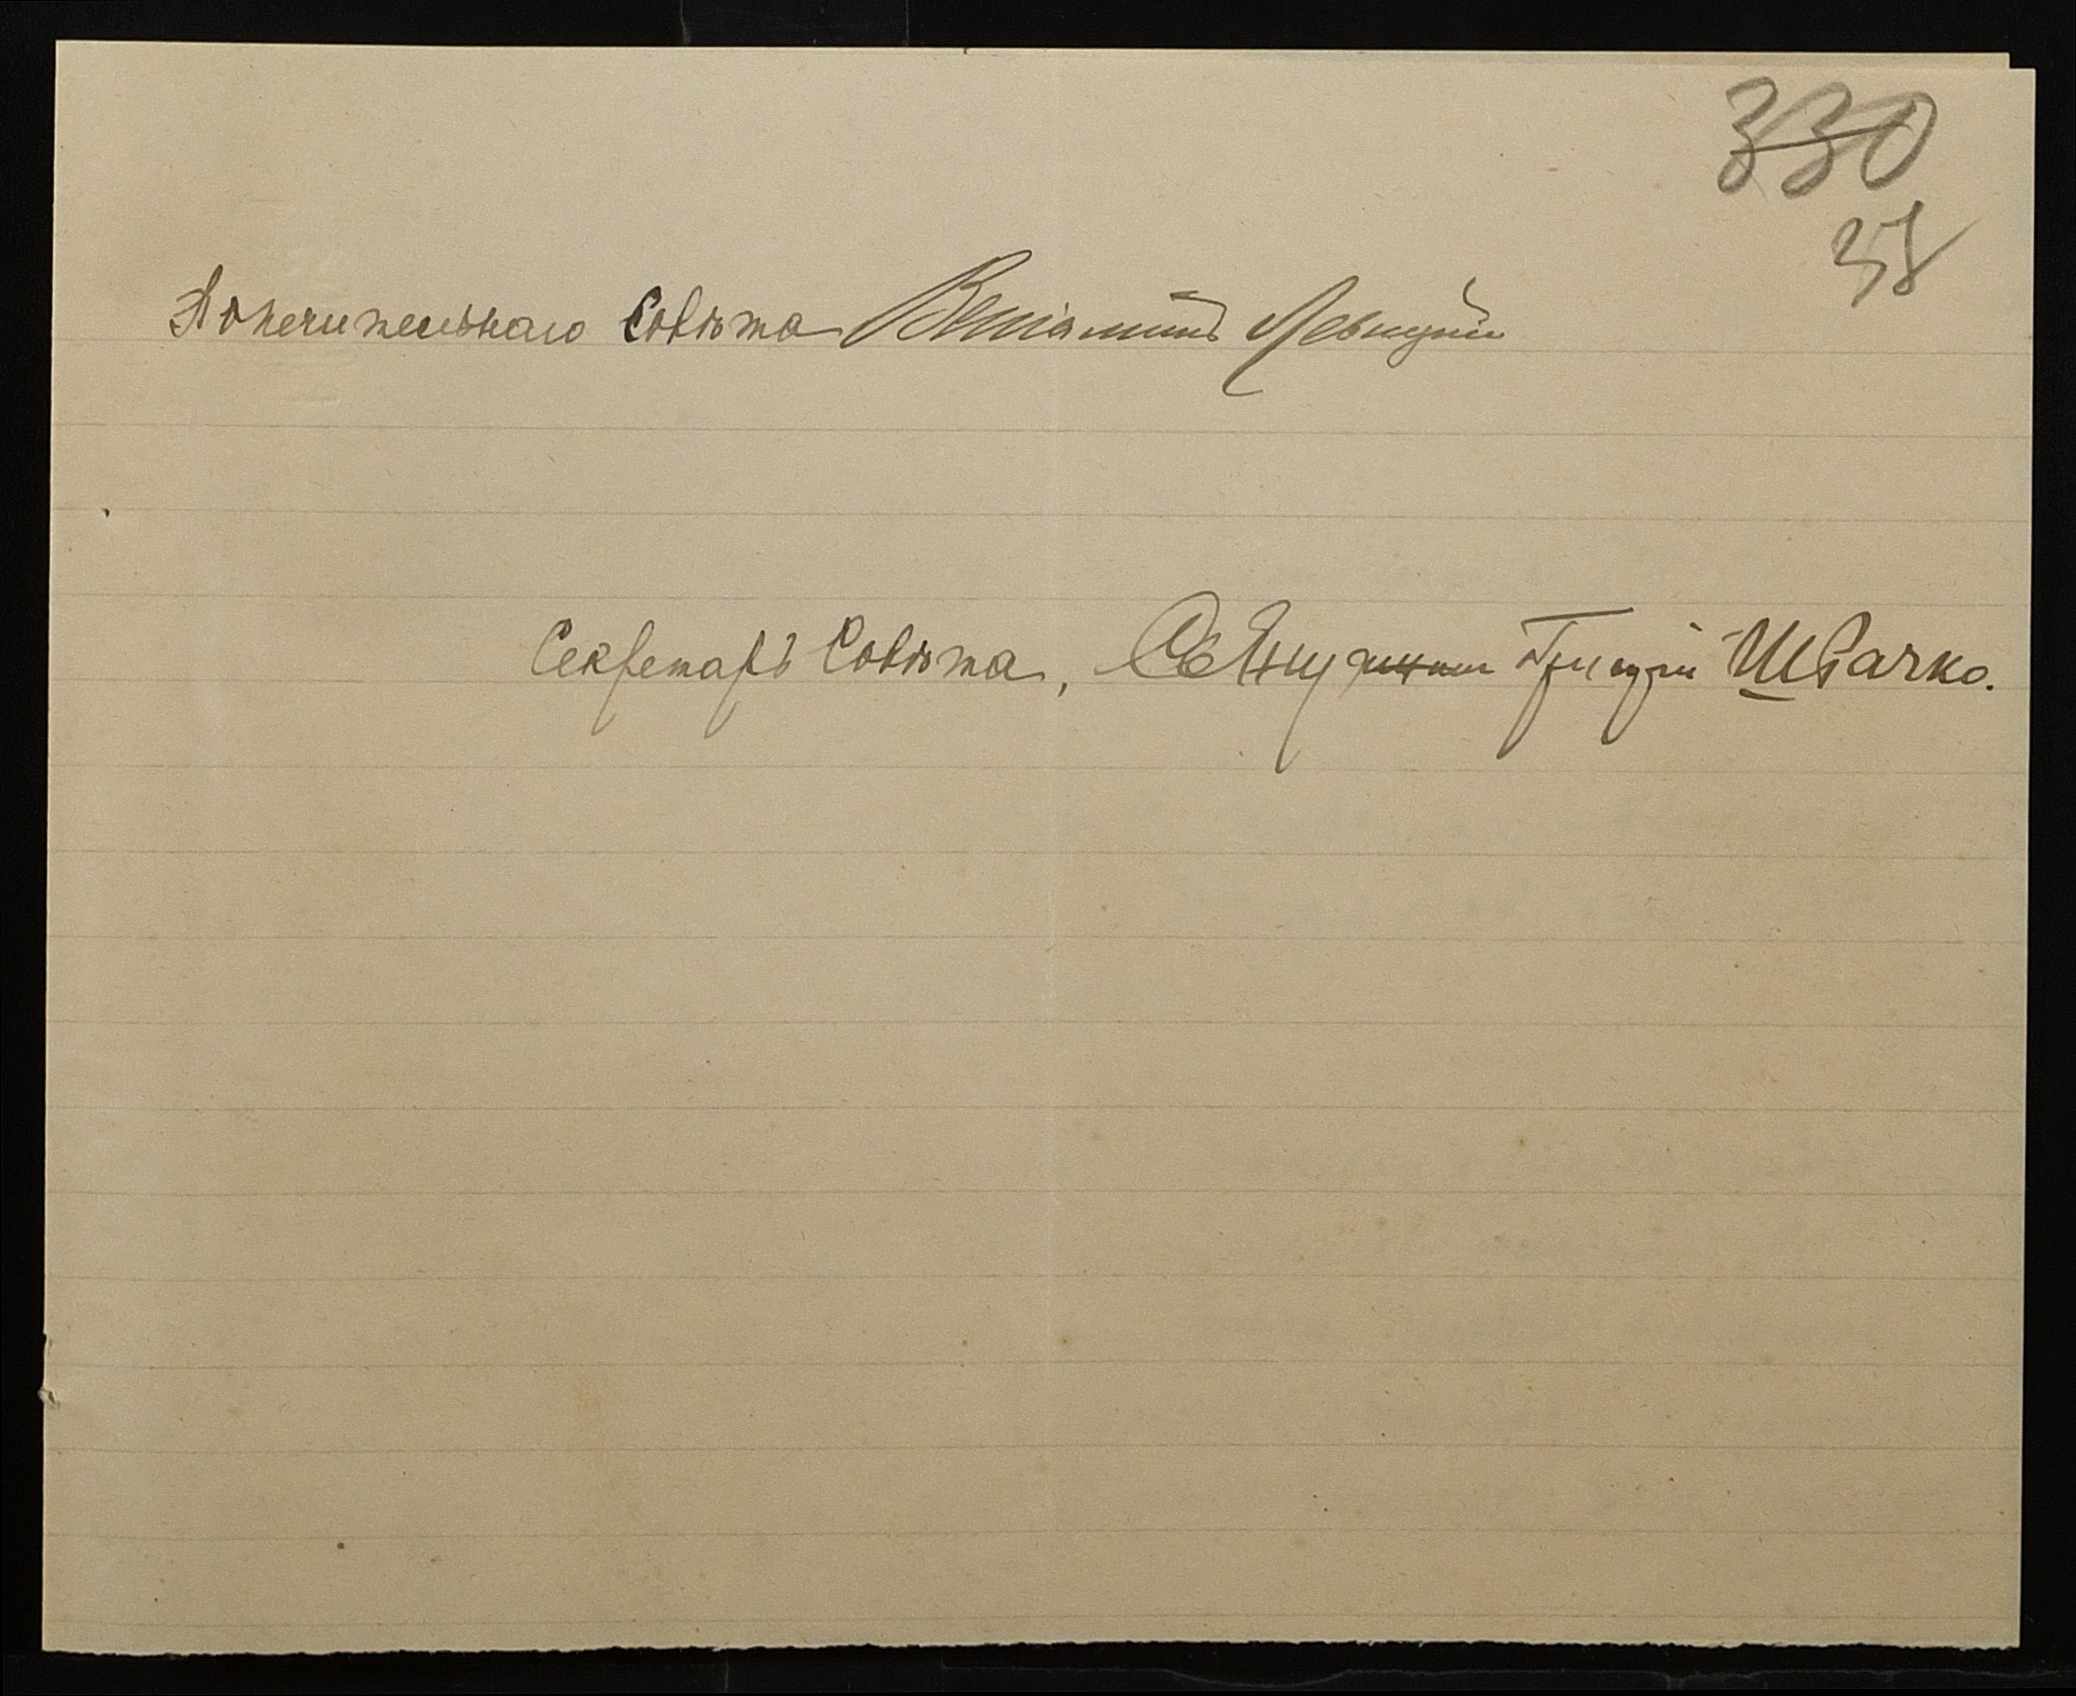 330
38
Попечительнаго Совѣта Веніаминъ Левицкій
Секретарь Совѣта, Священникъ Григорій Швачко.